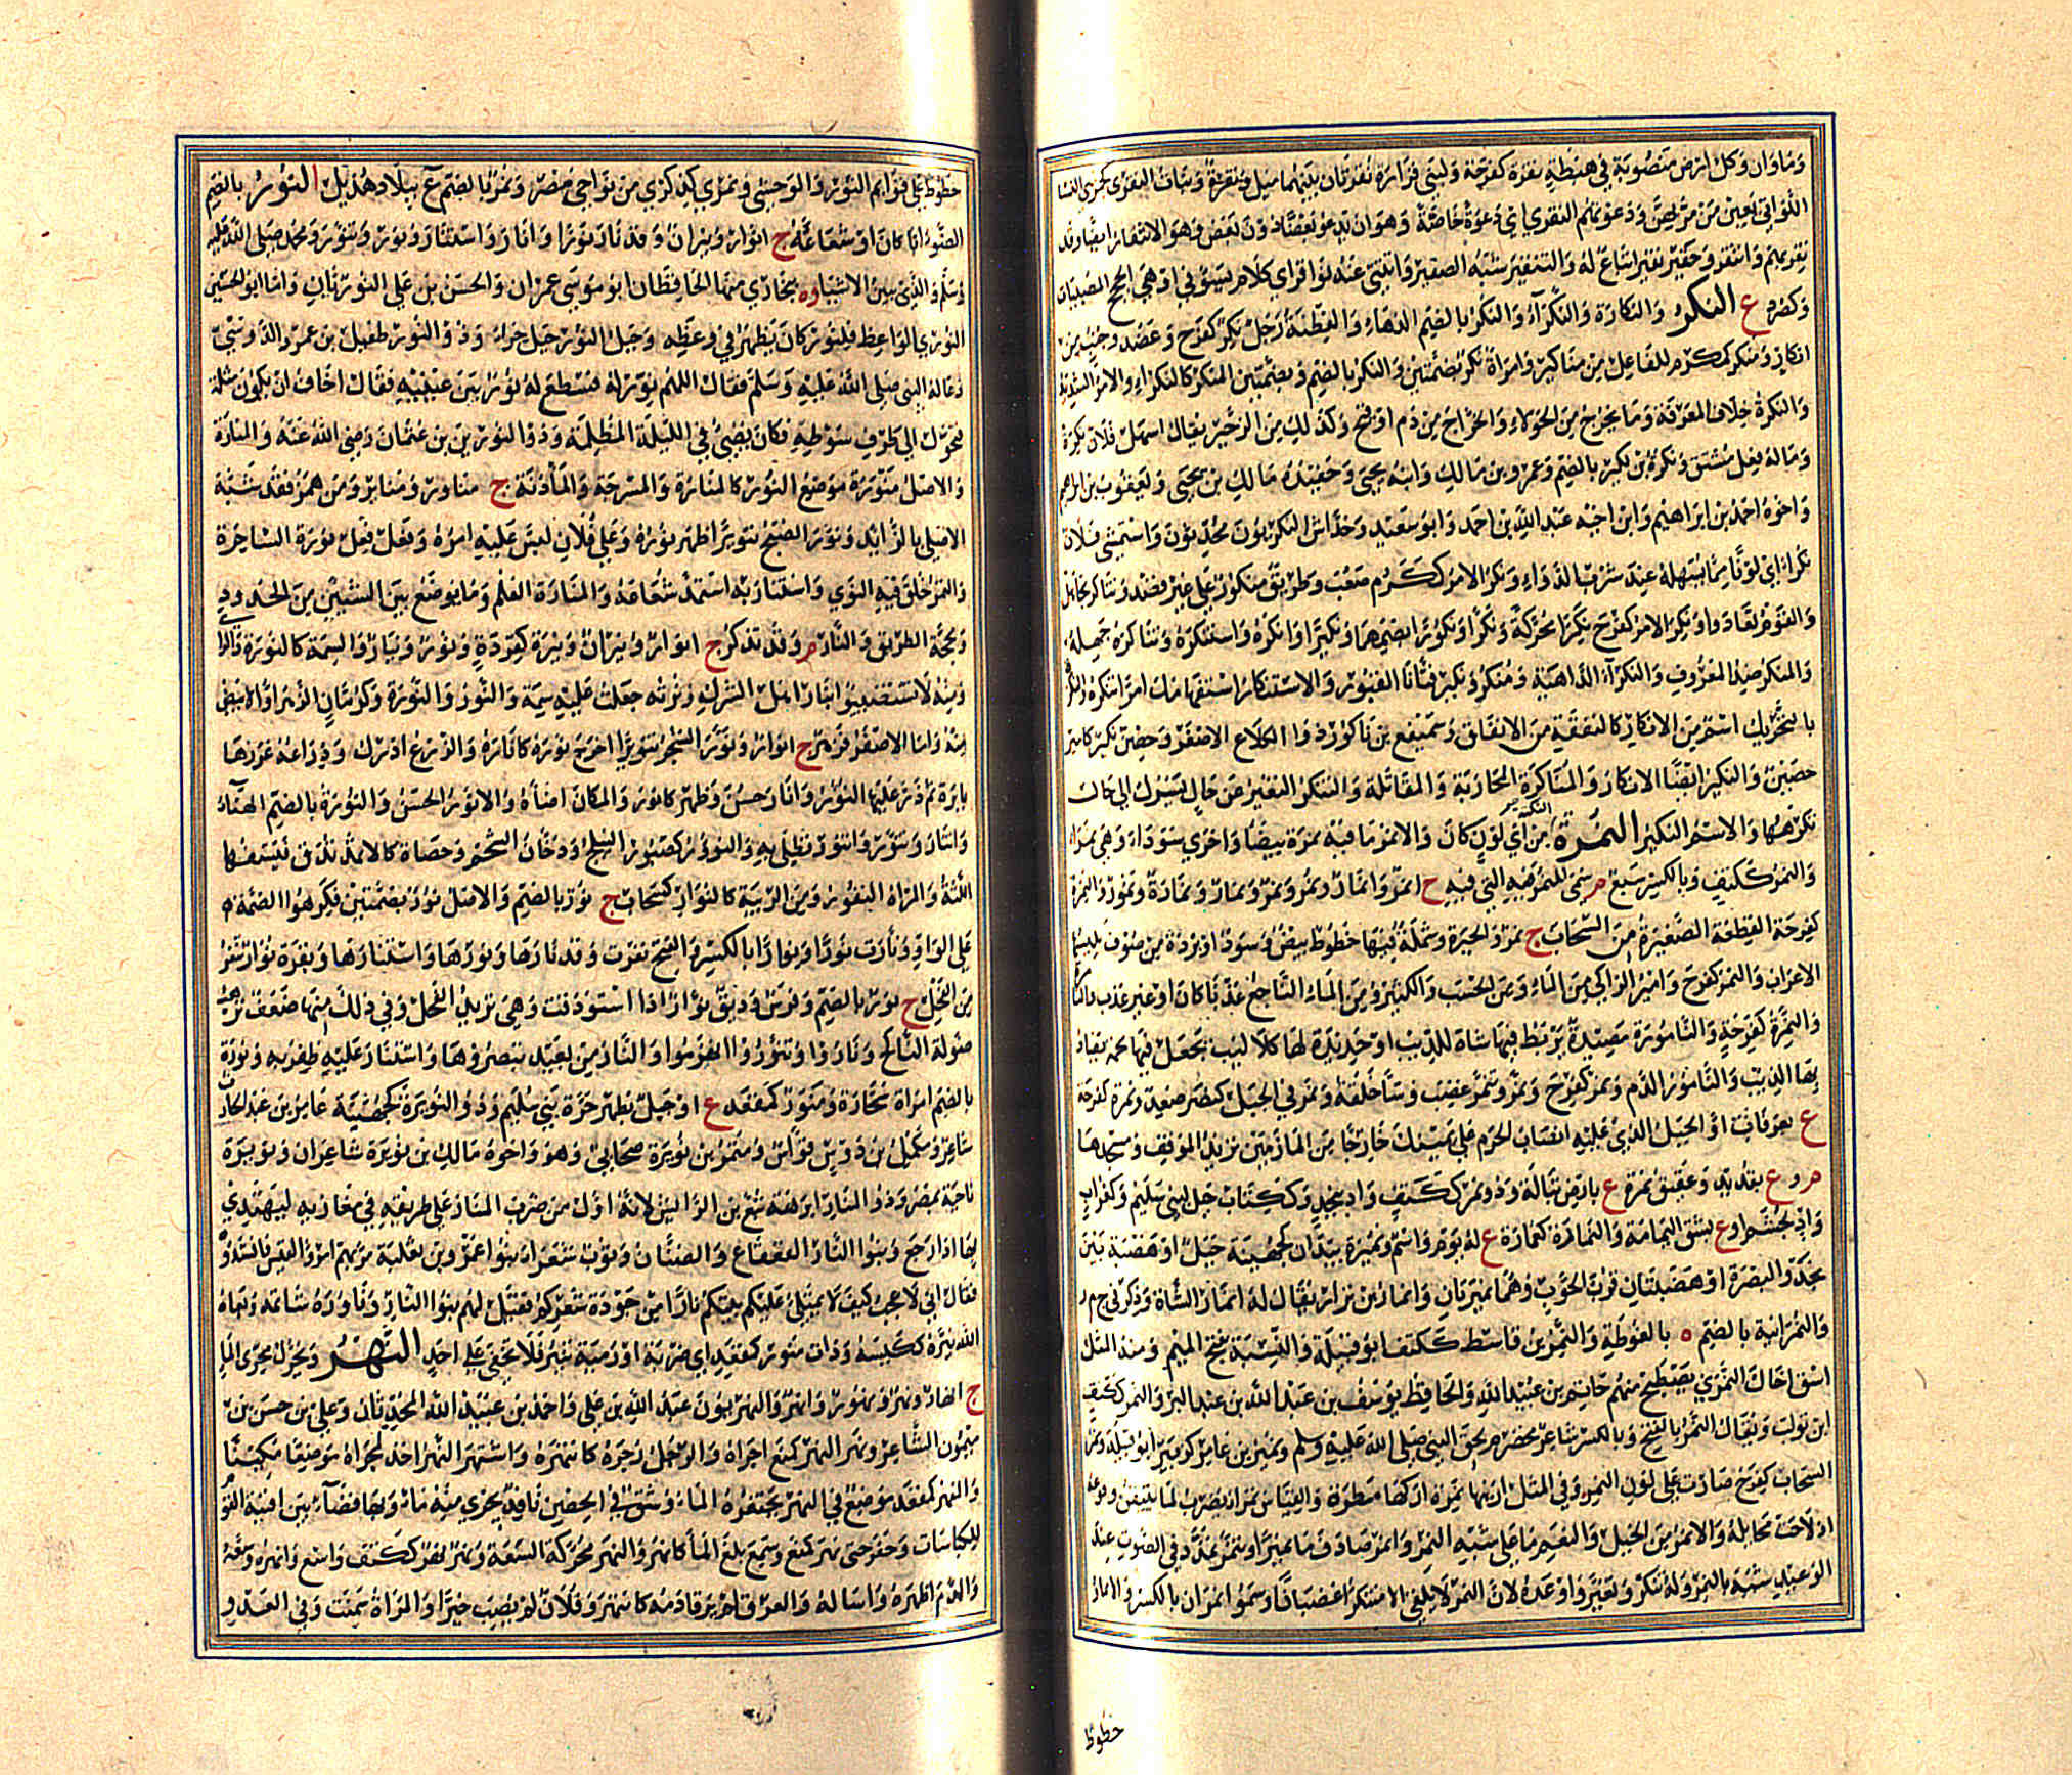 وماوان وكل ارض منصوبة في هبطة نقرة كفرحة ولبني فزارة نقرتان بينهما ميل ونقرة وبنات النقرى كجمزى النسا
اللواتي يعبن من مر بهن ودعوتهم النقرى اي دعوة خاصة وهو ان يدعو بعضا دون بعض وهو الانتقار ايضا وقد
نقر بهم وانتقر وحقير نقير اتباع له والتنقير شبه الصفير وانتني عنه نواقر اي كلام يسوني او هي الحجج المصيبات
وكصرد ع النكر والنكارة والنكراء والنكر بالضم الدهاء والفطنة رجل نكر كفرح وعضد وجنب من
انكار ومنكر كمكرم للفاعل من مناكير وامراة نكر بضمتين والنكر بالضم وبضمتين المنكر كالنكراء والامر الشديد
والنكرة خلاف المعرفة وما يخرج من الحولاء والخراج من دم او قيح وكذلك من الزحير يقال اسهل فلان نكرة
وماله فعل مشتق ونكرة بن لكيز بالضم وعمرو بن مالك وابنه يحيى وحفيده مالك بن يحيى ويعقوب بن ابراهيم
واخوه احمد بن ابراهيم وابن اخيه عبد الله بن احمد وابو سعيد وخداش النكريون محدثون واستمشى فلان
نكراء اي لونا مما يسهله عند شرب الدواء ونكر الامر ككرم صعب وطريق منكور على غير قصد وتناكر تجاهل
والقوم تعادوا ونكر الامر كفرح نكرا محركة ونكرا ونكورا بضمهما ونكيرا وانكره واستنكره وتناكره جهله
والمنكر ضد المعروف والنكراء الداهية ومنكر ونكير فتانا القبور والاستنكار استفهامك امرا تنكره والنكرة
بالتحريك اسم من الانكار كالنفقة من الانفاق وسميفع بن ناكور ذو الكلاع الاصغر وحصن نكير كامير
حصين والنكير ايضا الانكار والمناكرة المحاربة والمقاتلة والتنكر التغير عن حال تسرك الى حال
تكرهها والاسم النكير النمرة النكتة من اي لون كان والانمر ما فيه نمرة بيضا واخرى سوداء وهي نمراء
والنمر ككتف وبالكسر سبع م سمي للنمر فيه التي فيه ج انمر وانمار ونمر ونمر ونمار ونمارة ونمور والنمرة
كفرحة القطعة الصغيرة من السحاب ج نمر والحبرة وشملة فيها خطوط بيض وسود او بردة من صوف يلبسها
الاعراب والنمر كفرح وامير الزاكي من الماء ومن الحسب والكثير ومن الماء الناجع عذبا كان او غير عذب
والنمرة كفرحة والنامورة مصيدة تربط فيها شاة للذيب او حديدة لها كلاليب تجعل فيها لحمة يصاد
بها الذيب والنامور الدم ونمر كفرح ونمر وتنمر غضب وساء خلقه ونمر في الجبل كنصر صعد ونمرة كفرحة
ع بعرفات او الجبل الذي عليه انصاب الحرم على يمينك خارجا من المازمين تريد الموقف ومسجدها
م و ع بقديد وعقيق نمرة ع بارض تبالة وذو نمر ككتف واد بنجد وككتاب جبل لبني سليم وكغراب
واد لجشم او ع بشق اليمامة والنمارة كثمارة ع له يوم واسم ونميرة بيدان كجهينة جبل او هضبة بين
نجد والبصرة او هضبتان قرب الحوب وهما نميرتان وانمار بن نزار يقال له انمار الشاة وذكر في ح م ر
والنمرانية بالضم ه بالغوطة والنمر بن قاسط ككتف ابو قبيلة والنسبة بفتح الميم ومنه المثل
اسق اخاك النمري يصطبح منهم حاتم بن عبيد الله والحافظ يوسف بن عبد الله بن عبد البر والنمر ككتف
ابن تولب ويقال النمر بالفتح وبالكسر شاعر مخضرم لحق النبي صلى الله عليه وسلم ونمير بن عامر كزبير ابو قبيلة ونمر
السحاب كفرح صارت على لون النمر وفي المثل ارنيها نمرة اركها مطرة والقياس نمراء يضرب لما يتيقن وقوعه
اذ لاحت مخايله والانمر من الخيل والنعم ما على شبه النمر وانمر صادف ما نميرا وتنمر تمدد في الصوت عند
الوعيد شبه بالنمر وله تنكر وتغير واوعده لان النمر لا يلفى الا متنكرا غضبانا وسموا نمران بالكسر والانمار
خطوط
خطوط على قوائم الثور والوحشي ونمرى كذكرى من نواحي مصر ونمر بالضم ع ببلاد هذيل النور بالضم
الضوء ايا كان او شعاعه ج انوار ونيران وقد نار نورا وانار واستنار ونور وتنور ومحمد صلى الله عليه
وسلم والذي يبين الاشيا وه ببخارى منها الحافظان ابو موسى عمران والحسن بن علي النوريان واما ابو الحسين
النوري الواعظ فلنور كان يظهر في وعظه وجبل النور جبل حراء وذو النور طفيل بن عمرو الدوسي
دعا له النبي صلى الله عليه وسلم فقال اللهم نور له فسطع له نور بين عينيه فقال اخاف ان يكون مثلة
فتحول الى طرف سوطه فكان يضيئ في الليلة المظلمة وذو النورين بن عثمان رضي الله عنه والمنارة
والاصل منورة موضع النور كالمنارة والمسرجة والمأذنة ج مناور ومنائر ومن همز فقد شبه
الاصلي بالزايد ونور الصبح تنويرا ظهر نوره وعلى فلان لبس عليه امره وفعل فعل نورة الساحرة
والتمر خلق فيه النوى واستنار به استمد شعاعه والمنارة العلم وما يوضع بين الشيين من الحدود
ومحجة الطريق والنار م وقد تذكر ج انوار ونيران ونيرة كقردة ونور ونيار والسمة كالنورة والراي
ومنه لا تستضيئوا بنار اهل الشرك ونرته جعلت عليه سمة والنور والنورة وكرمان الزهر او الابيض
منه واما الاصفر فزهر ج انوار ونور الشجر تنويرا اخرج نوره كانار والزرع ادرك وذراعه غرزها
بابرة ثم ذر عليها النؤر وانار حسن وظهر كانور والمكان اضاءه والانور الحسن والنورة بالضم الهناء
وانتار وتنور وانتور تطلى به والنؤر كصبور النيلج ودخان الشحم وحصاة كالاثمد تدق فتسفها
اللثة والمراة النفور من الريبة كالنوار كسحاب ج نور بالضم والاصل نور بضمتين فكرهوا الضمة
على الواو ونارت نورا ونوارا بالكسر والفتح نفرت وقد نارها ونورها واستنارها وبقرة نوار تنفر
من الفحل ج نور بالضم وفرس وديق نوار اذا استودقت وهي تريد الفحل وفي ذلك منها ضعف ترهب
صولة الناكح وناروا وتنوروا انهزموا والنار من بعيد تبصروها واستنار عليه ظفر به ونورة
بالضم امراة سحارة ومنور كمقعد ع او جبل بظهر حرة بني سليم وذو النويرة كجهينة عامر بن عبد الحارث
شاعر ومكمل بن دوس قواس ومتمم بن نويرة صحابي وهو واخوه مالك بن نويرة شاعران ونويرة
ناحية بمصر وذو المنار ابرهة تبع بن الرايش لانه اول من ضرب المنار على طريقه في مغازيه ليهتدي
بها اذا رجع وبنو النار القعقاع والضنان وثوب شعراء بنو عمرو بن ثعلبة مر بهم امرؤ القيس فانشدوه
فقال اني لاعجب كيف لا يمتلي عليكم بيتكم نارا من جودة شعركم فقيل لهم بنو النار وناوره شاتمه وبغاه
الله نيرة ككيسة وذات منور كمقعد اي ضربة او رمية تنير فلا تخفى على احد النهر ويحرك مجرى الماء
ج انهار ونهر ونهور وانهر والنهريون عبد الله بن علي واحمد بن عبيد الله المحدثان وعلي بن حسن بن
ميمون الشاعر ونهر النهر كمنع اجراه والرجل زجره كانتهره واستنهر النهر اخذ لمجراه موضعا مكينا
والمنهر كمقعد موضع في النهر يحتفره الماء وشق في الحصن نافذ يجري منه ماء وبها فضاء بين افنية القوم
للكناسات وحفر حتى نهر كمنع وسمع بلغ الماء كانهر والنهر محركة السعة ونهر نهر ككتف واسع وانهره وسعه
والدم اظهره واساله والعرق لم يرقا دمه كانتهر وفلان لم يصب خيرا والمراة سمنت وفي العدو